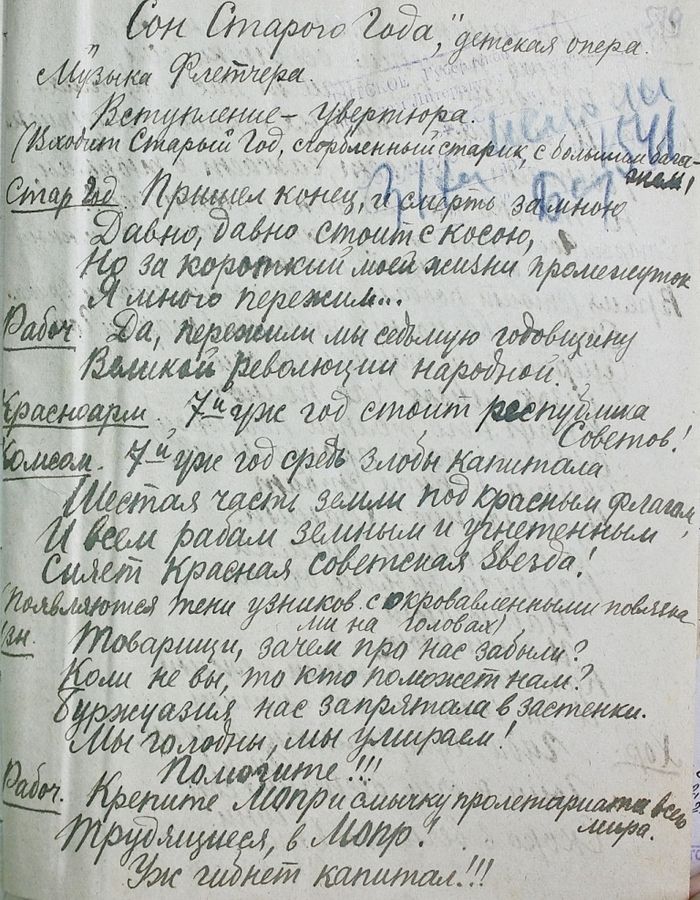 "Сон Старого Года," детская опера.
Музыка Флетчера.
Вступление – увертюра.
(Входит Старый Год, сгорбленный старик, с большим бага-
жем)
Стар Год. Пришел конец, и смерть за мною
Давно, давно стоит с косою,
Но за короткий моей жизни промежуток
Я много пережил...
Рабоч. Да, пережили мы седьмую годовщину
Великой революции народной.
Красноарм. 7й уж год стоит республика
Советов!
Комсом. 7й уж год средь злобы капитала
Шестая часть земли под красным флагом,
И всем рабам земным и угнетенным
Сияет Красная советская Звезда!
(Появляются тени узников с окровавленными повязка-
ми на головах)
Товарищи, зачем про нас забыли?
Коли не вы, то кто поможет нам?
Буржуазия нас запрятала в застенки.
Мы голодны, мы умираем!
Помогите!!!
Рабоч. Крепите Мопр и смычку пролетариата всего
мира.
Трудящиеся, в Мопр!
Уж гибнет капитал!!!